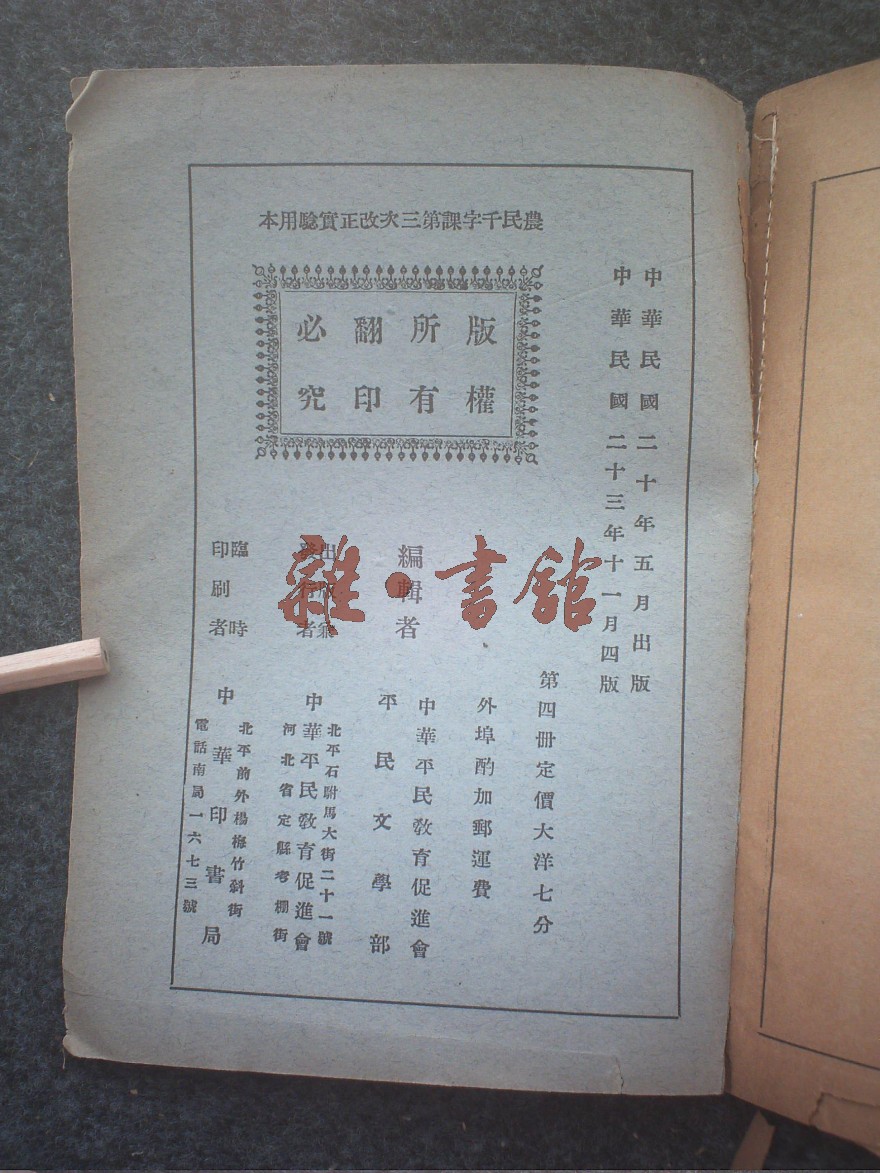 農民千字課第三次改正實驗用本
版權所有翻印必究
中華民國二十年五月出版
中華民國二十三年十一月四版
第四冊定價大洋七分
外埠酌加郵運費
編輯者
中華平民教育促進會
平民文學部
出版兼
發行者
北平石駙馬大街二十一號
中華平民教育促進會
河北省定縣考棚街
臨時
印刷者
北平前外楊梅竹斜街
中華印書局
電話南局一六七三號
雜·書館